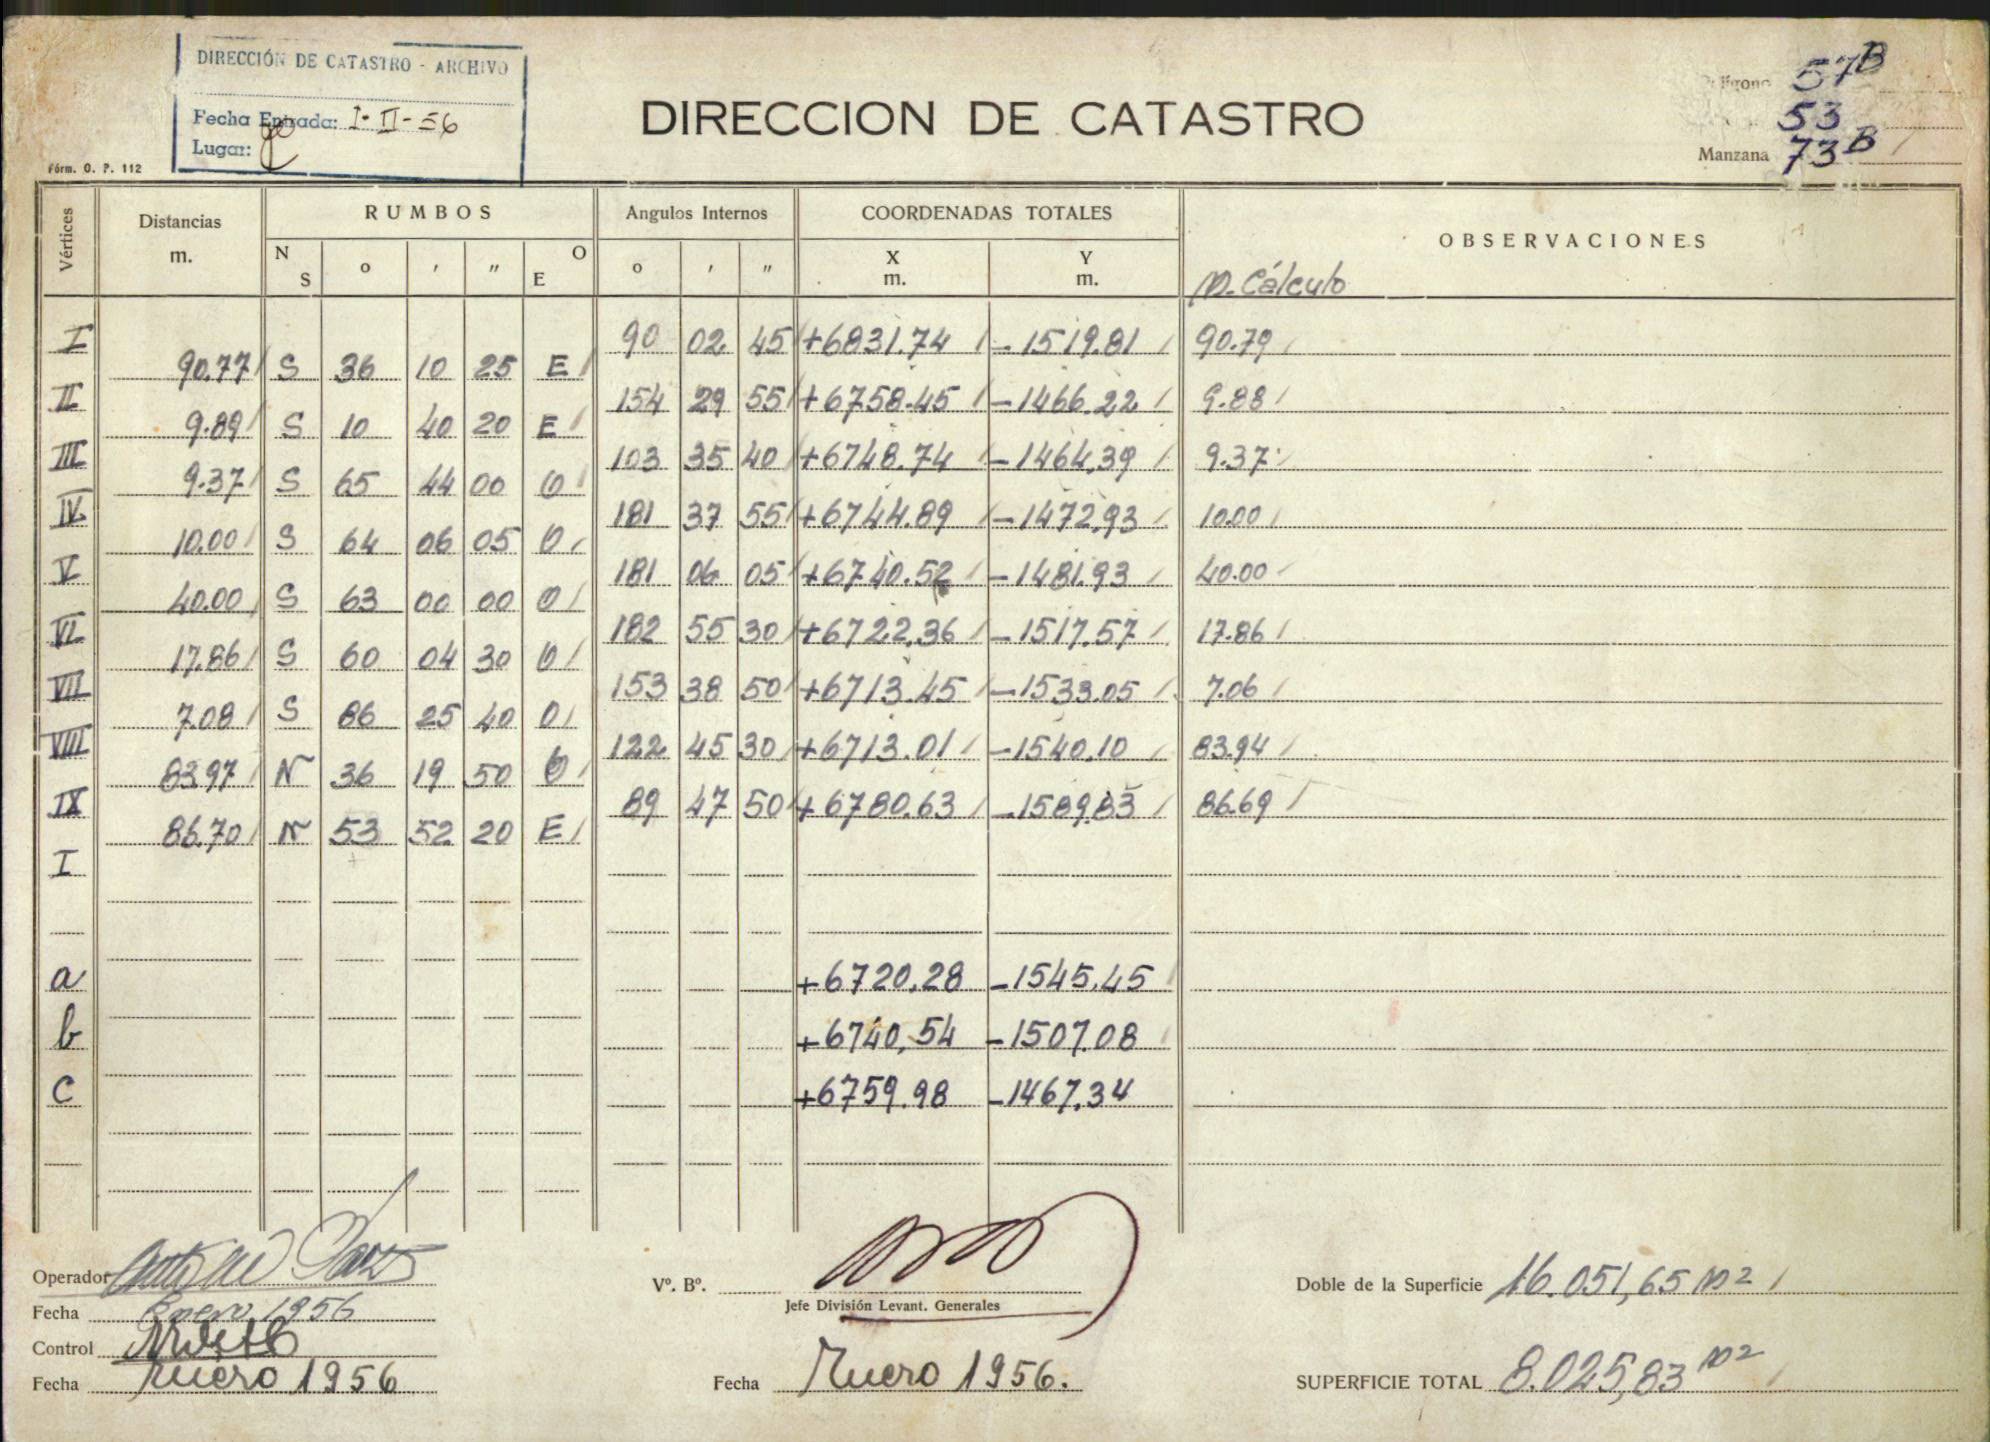 DIRECCIÓN DE CATASTRO - ARCHIVO
Fecha Entrada: I-II-56
Lugar:
DIRECCION DE CATASTRO
57B
53
Manzana 73B
Fórm. O. P. 112
Vértices Distancias m. RUMBOS N S o ' " O E Angulos Internos o ' " COORDENADAS TOTALES X m. Y m. OBSERVACIONES
M. Cálculo
I 90 02 45 +6831.74 -1519.81 90.79
90.77 S 36 10 25 E
II 154 29 55 +6758.45 -1466.22 9.88
9.89 S 10 40 20 E
III 103 35 40 +6748.74 -1464,39 9.37
9.37 S 65 44 00 O
IV 181 37 55 +6744.89 -1472,93 10.00
10.00 S 64 06 05 O
V 181 06 05 +6740.52 -1481.93 40.00
40.00 S 63 00 00 O
VI 182 55 30 +6722.36 -1517.57 17.86
17.86 S 60 04 30 O
VII 153 38 50 +6713.45 -1533.05 7.06
7.08 S 86 25 40 O
VIII 122 45 30 +6713.01 -1540.10 83.94
83.97 N 36 19 50 O
IX 89 47 50 +6780.63 -1589.83 86.69
86.70 N 53 52 20 E
I
a +6720.28 -1545.45
b +6740,54 -1507.08
c +6759.98 -1467.34
Operador
Fecha Enero 1956
Control
Fecha Enero 1956
Vº. Bº.
Jefe División Levant. Generales
Fecha Enero 1956.
Doble de la Superficie 16.051,65 m2
SUPERFICIE TOTAL 8.025,83 m2